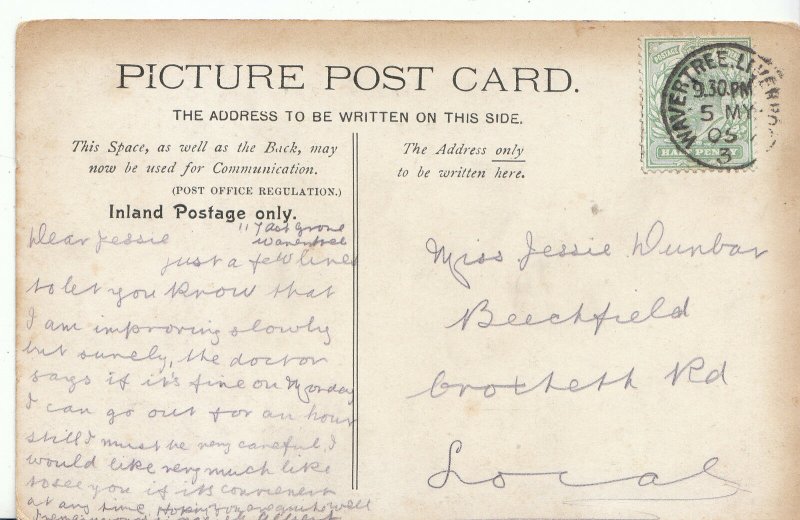 PICTURE POST CARD.
THE ADDRESS TO BE WRITTEN ON THIS SIDE.
This Space, as well as the Back, may
now be used for Communication.
(POST OFFICE REGULATION.)
Inland Postage only.
The Address only
to be written here.
WAVERTREE. LIVERPOOL
9.30 PM
5 MY
05
3
POSTAGE
HALF PENNY
Grove
Wavertree
Dear Jessie
just a few lines
to let you know that
I am improving slowly
but surely, the doctor
says if it's fine on Monday
I can go out for an hour
still I must be very careful, I
would like very much like
to see you if its convenient
at any time Hoping you are quite well
Albert
Miss Jessie Dunbar
Beechfield
Croxteth Rd
Local